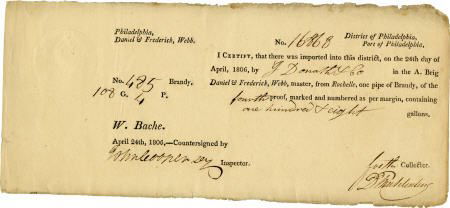 Philadelphia,
Daniel & Frederick, Webb.
No. 485 Brandy.
108 G. 4 P.
W. Bache.
April 24th, 1806,—Countersigned by
John Cooper Inspector.
No. 16868 District of Philadelphia,
Port of Philadelphia.
I CERTIFY, that there was imported into this district, on the 24th day
of April, 1806, by J Donath & Co in the A. Brig
Daniel & Frederick, Webb, master, from Rochelle, one pipe of Brandy, of the
fourth proof, marked and numbered as per margin, containing
one hundred & eight gallons.
Collector.